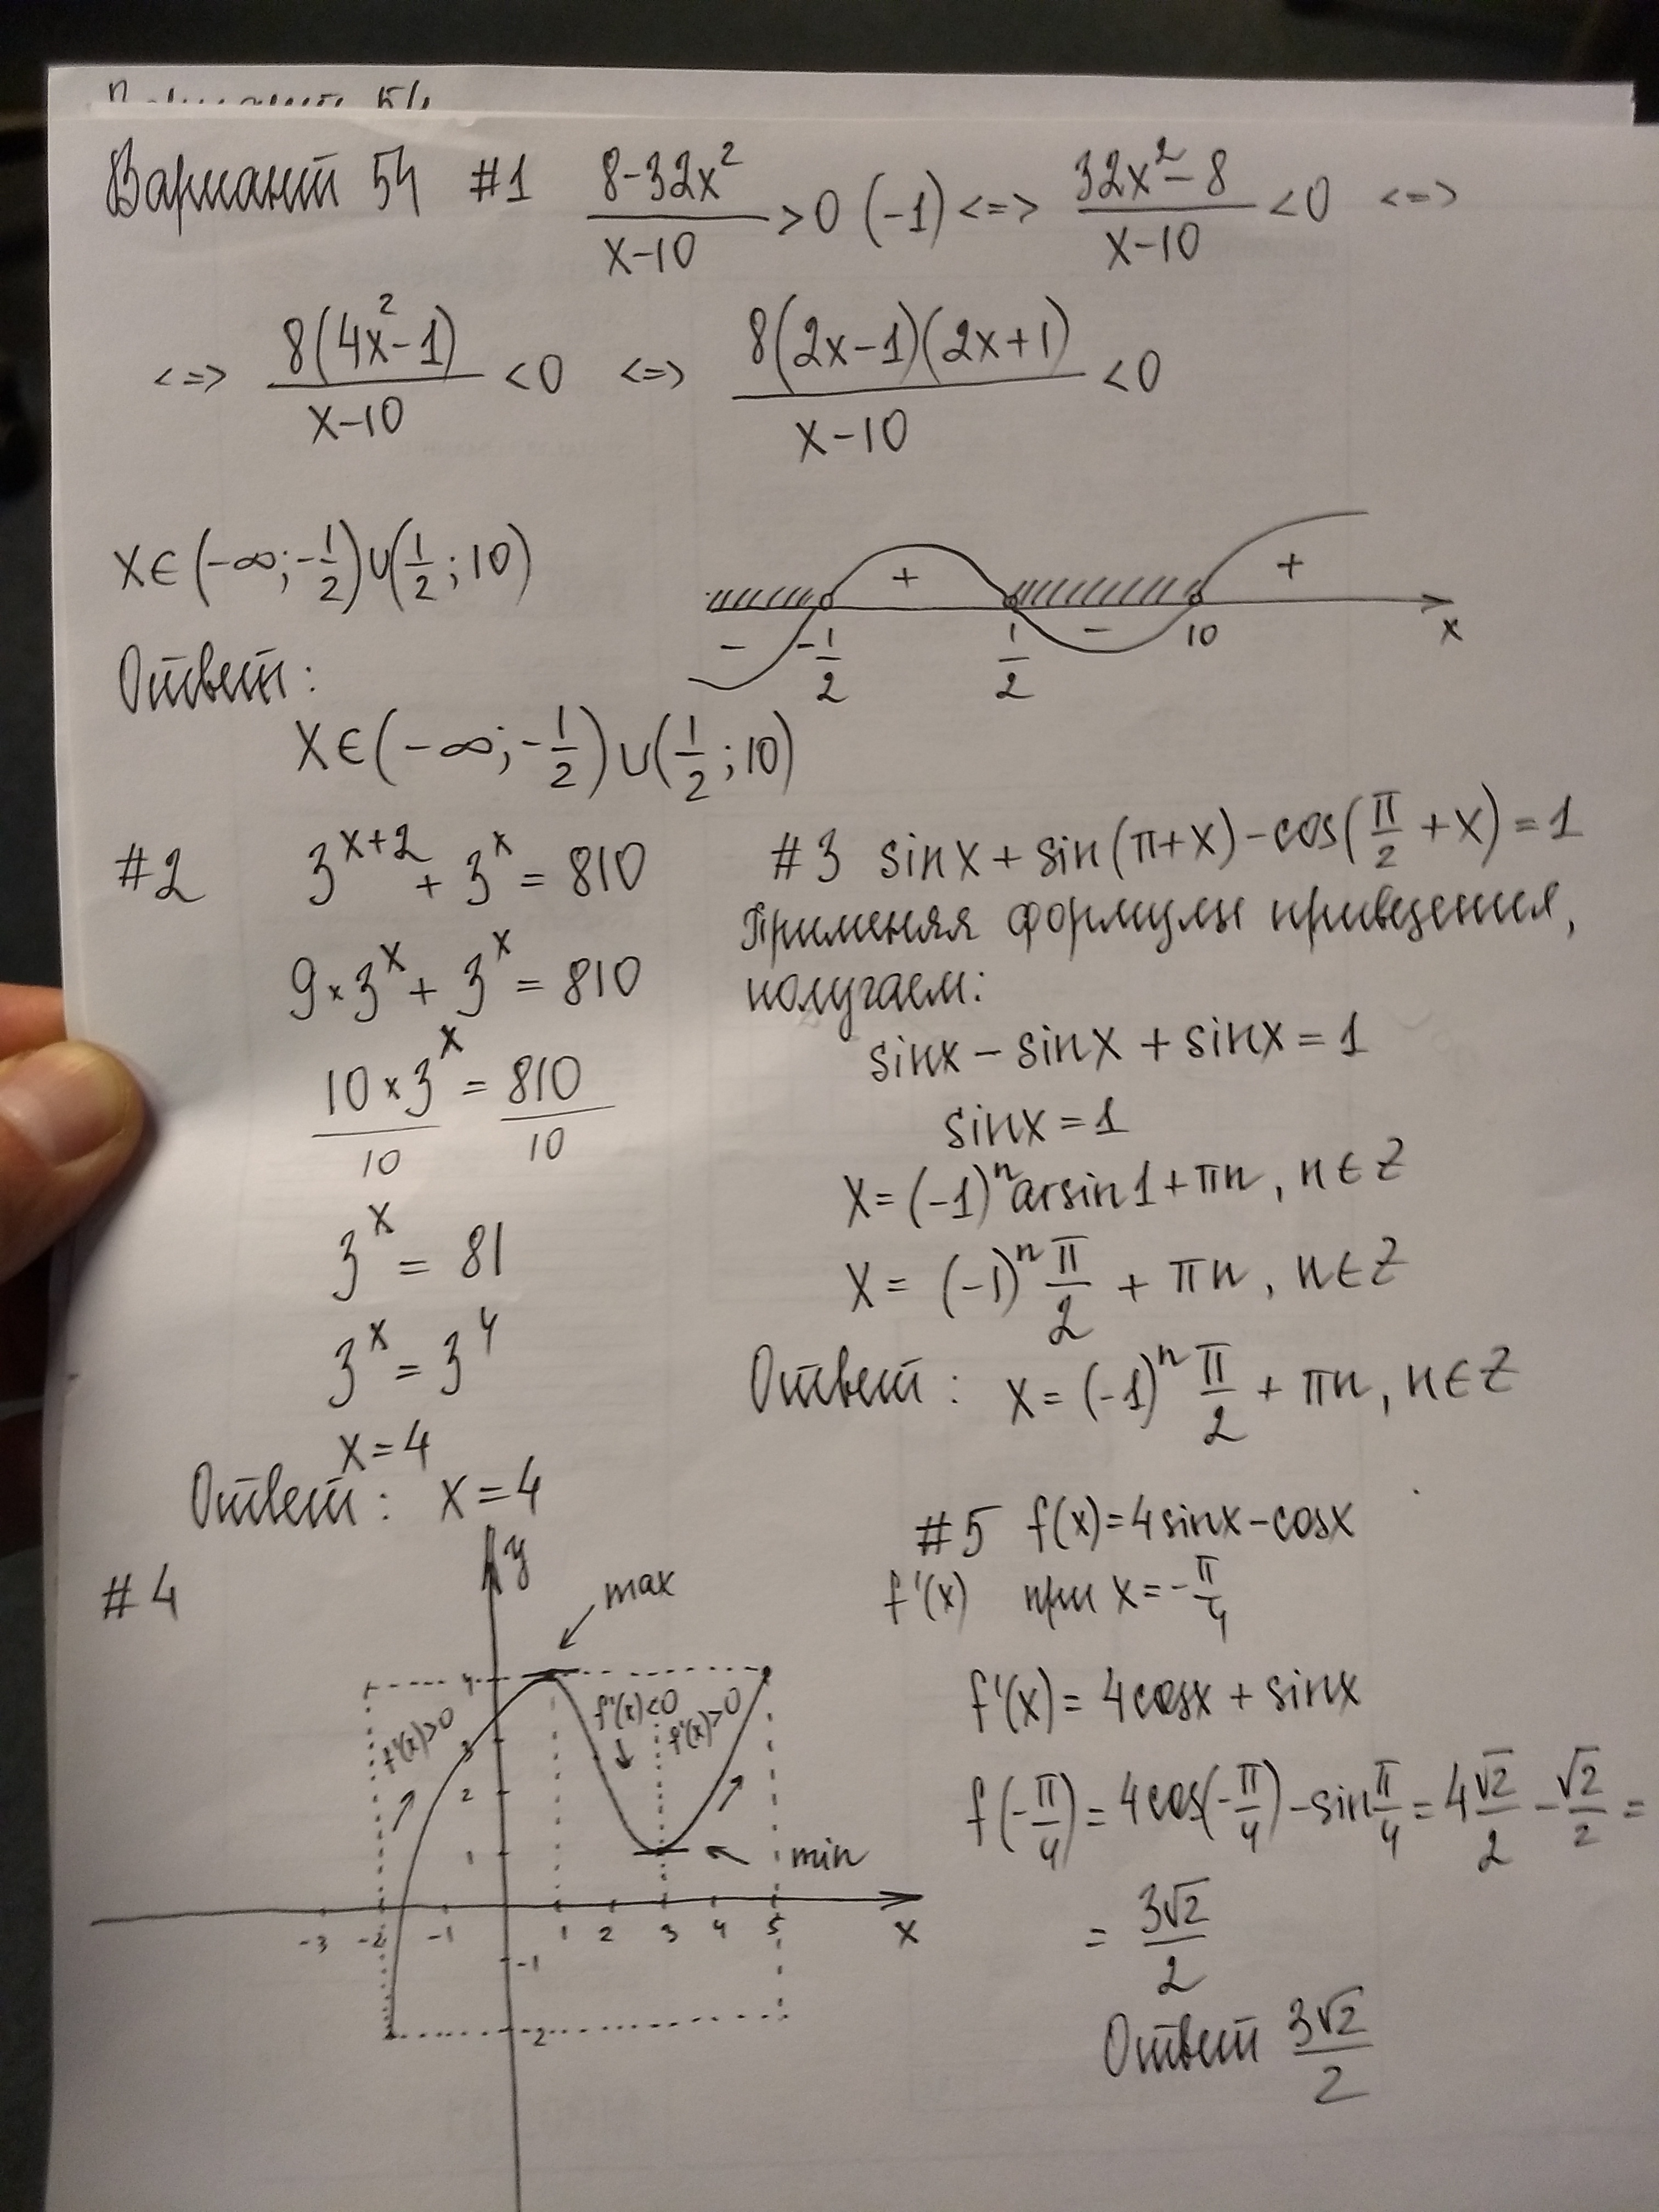 Вариант 54 #1 (8-32x²)/(x-10) >0 (-1) <=> (32x²-8)/(x-10) <0 <=>
<=> 8(4x²-1)/(x-10) <0 <=> 8(2x-1)(2x+1)/(x-10) <0
x∈(-∞;-1/2)∪(1/2;10)
+ +
- -1/2 1/2 - 10 x
Ответ:
x∈(-∞;-1/2)∪(1/2;10)
#2 3^(x+2) + 3^x = 810
9×3^x + 3^x = 810
(10×3^x)/10 = 810/10
3^x = 81
3^x = 3^4
x=4
Ответ: x=4
#3 sinx + sin(π+x) - cos(π/2 + x) = 1
Применяя формулы приведения,
получаем:
sinx - sinx + sinx = 1
sinx = 1
x = (-1)^n arsin1 + πn, n∈Z
x = (-1)^n π/2 + πn, n∈Z
Ответ: x = (-1)^n π/2 + πn, n∈Z
#4
y
max
4
f'(x)>0 f'(x)<0 f'(x)>0
3
2
1
min
-3 -2 -1 1 2 3 4 5 x
-1
-2
#5 f(x)=4sinx-cosx
f'(x) при x=-π/4
f'(x) = 4cosx + sinx
f(-π/4) = 4cos(-π/4) - sin π/4 = 4 √2/2 - √2/2 =
= 3√2/2
Ответ 3√2/2